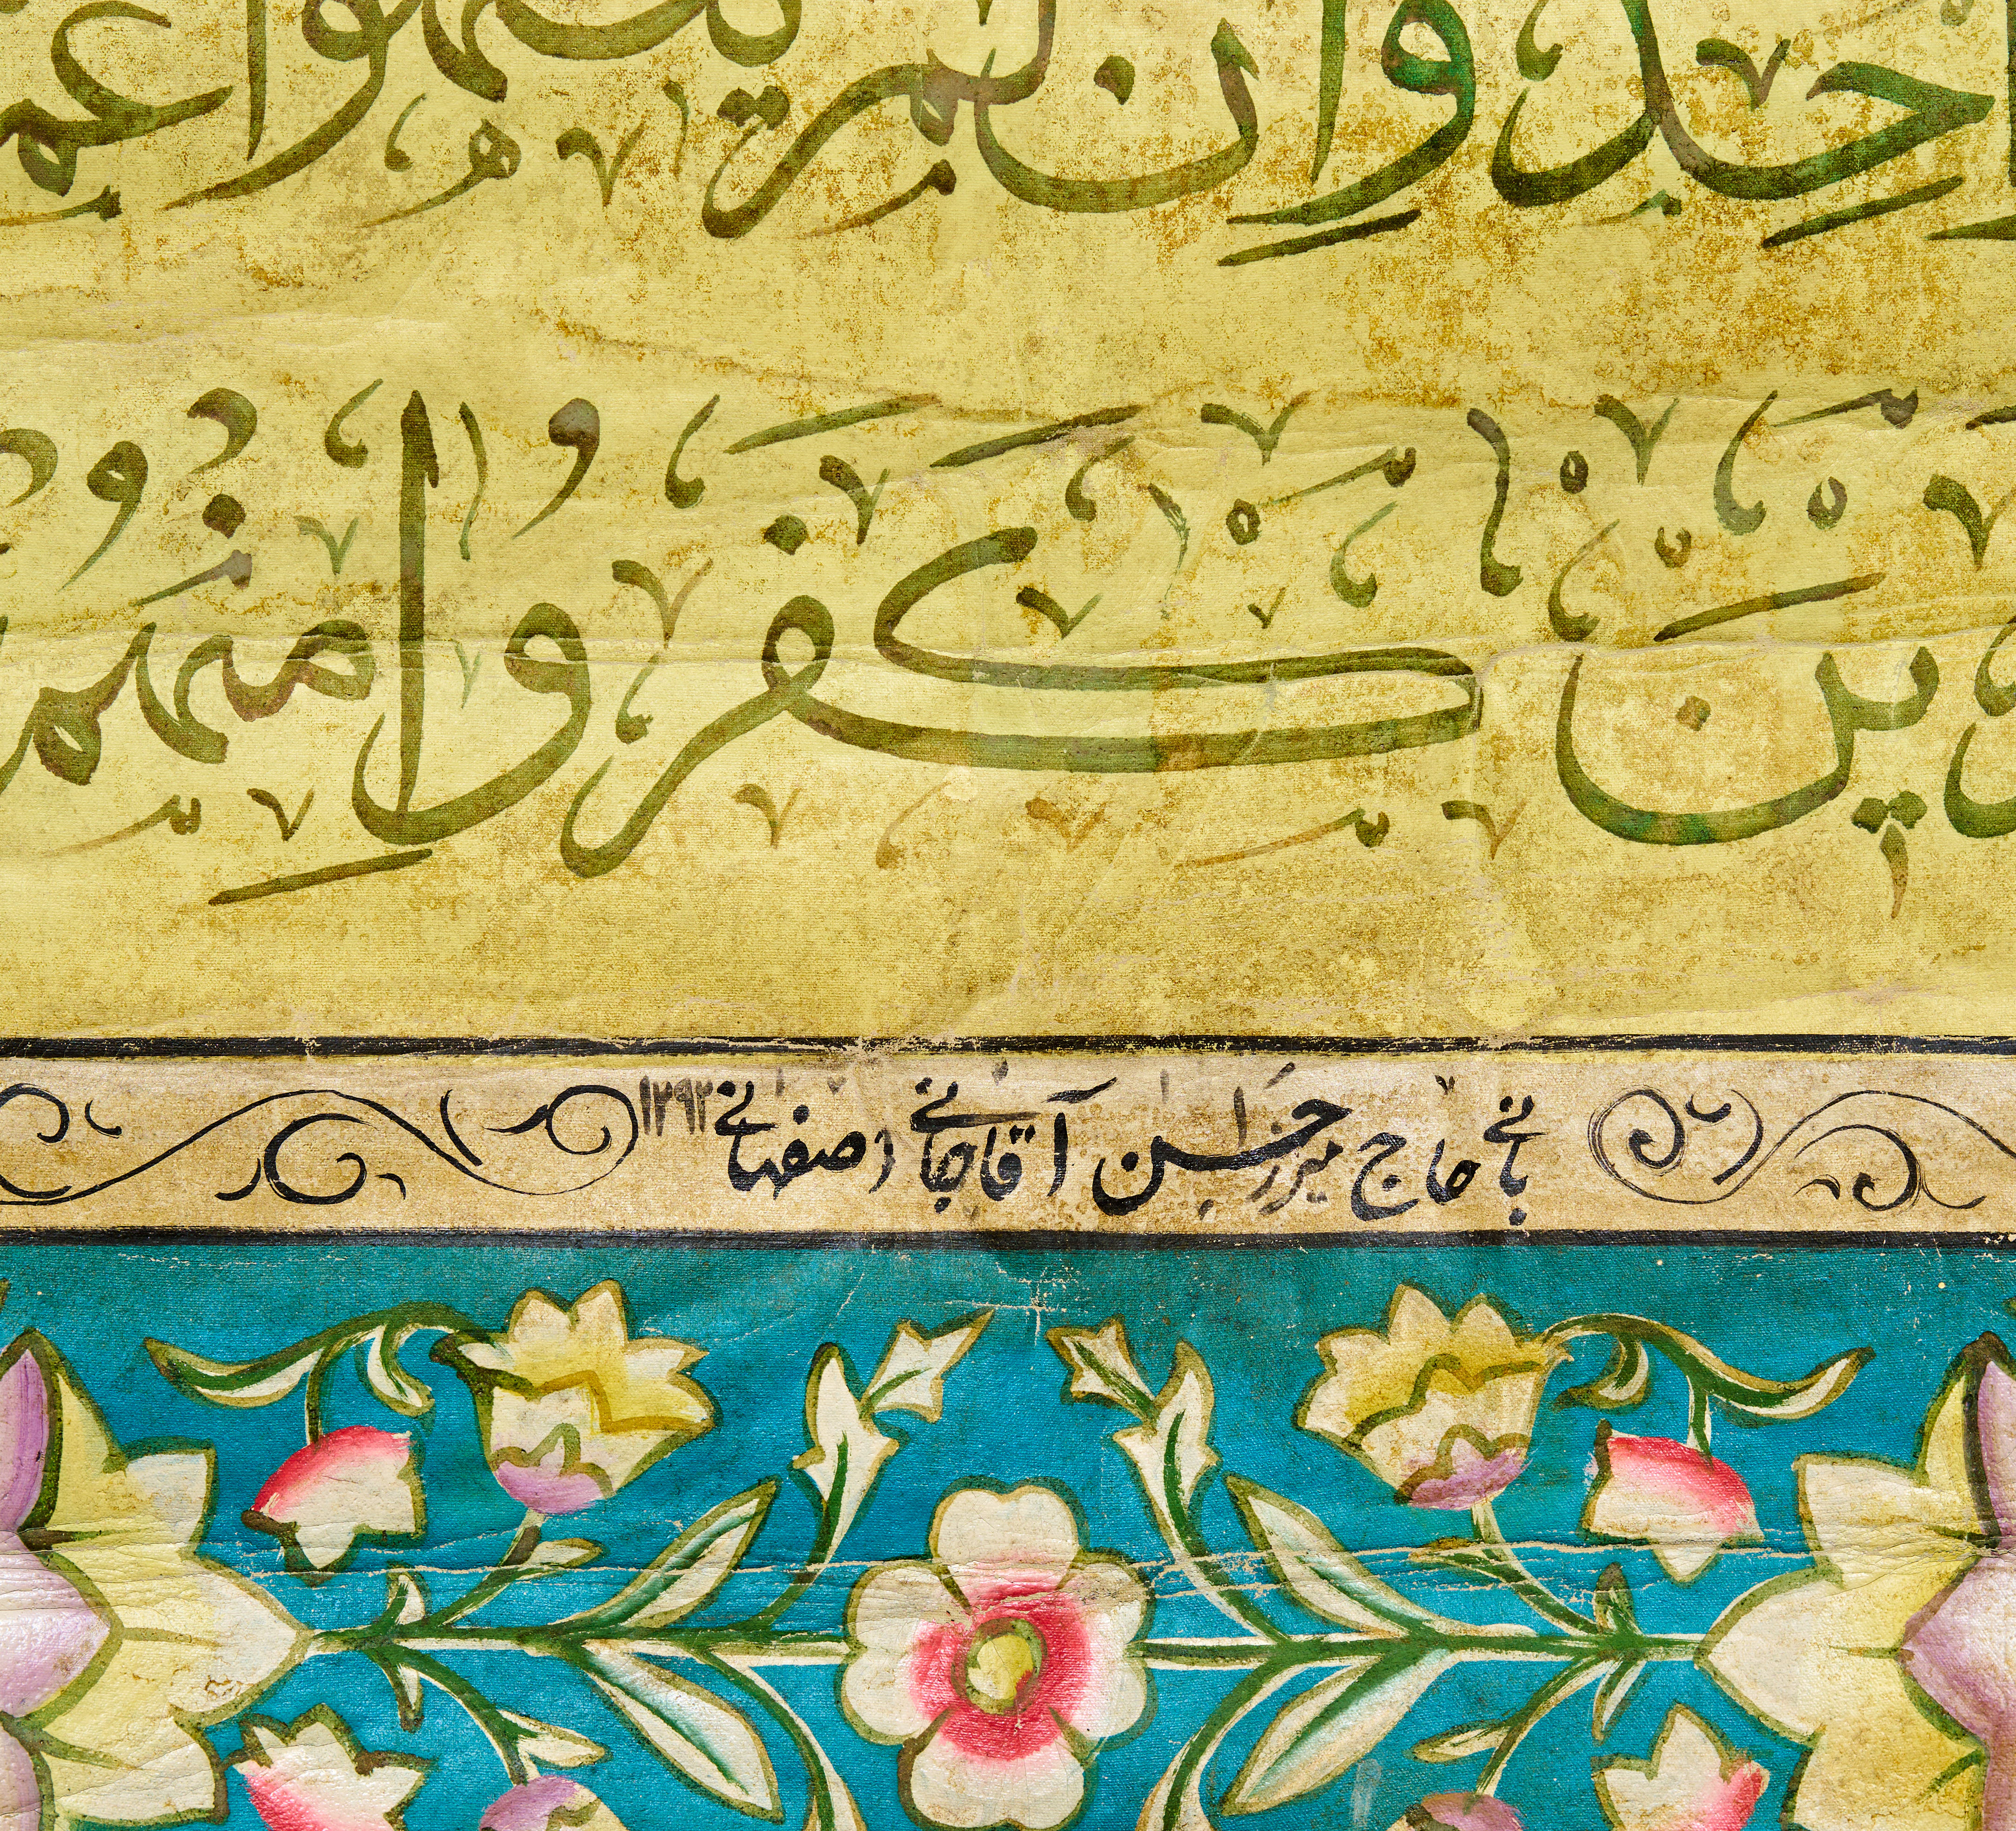 وَاحِدٌ وَاِن لَّمْ يَنتَهُوا عَمَّا
الَّذِينَ كَفَرُوا مِنْهُمْ
بانی حاج میرزا حسن آقاجانی اصفهانی ۱۲۹۲